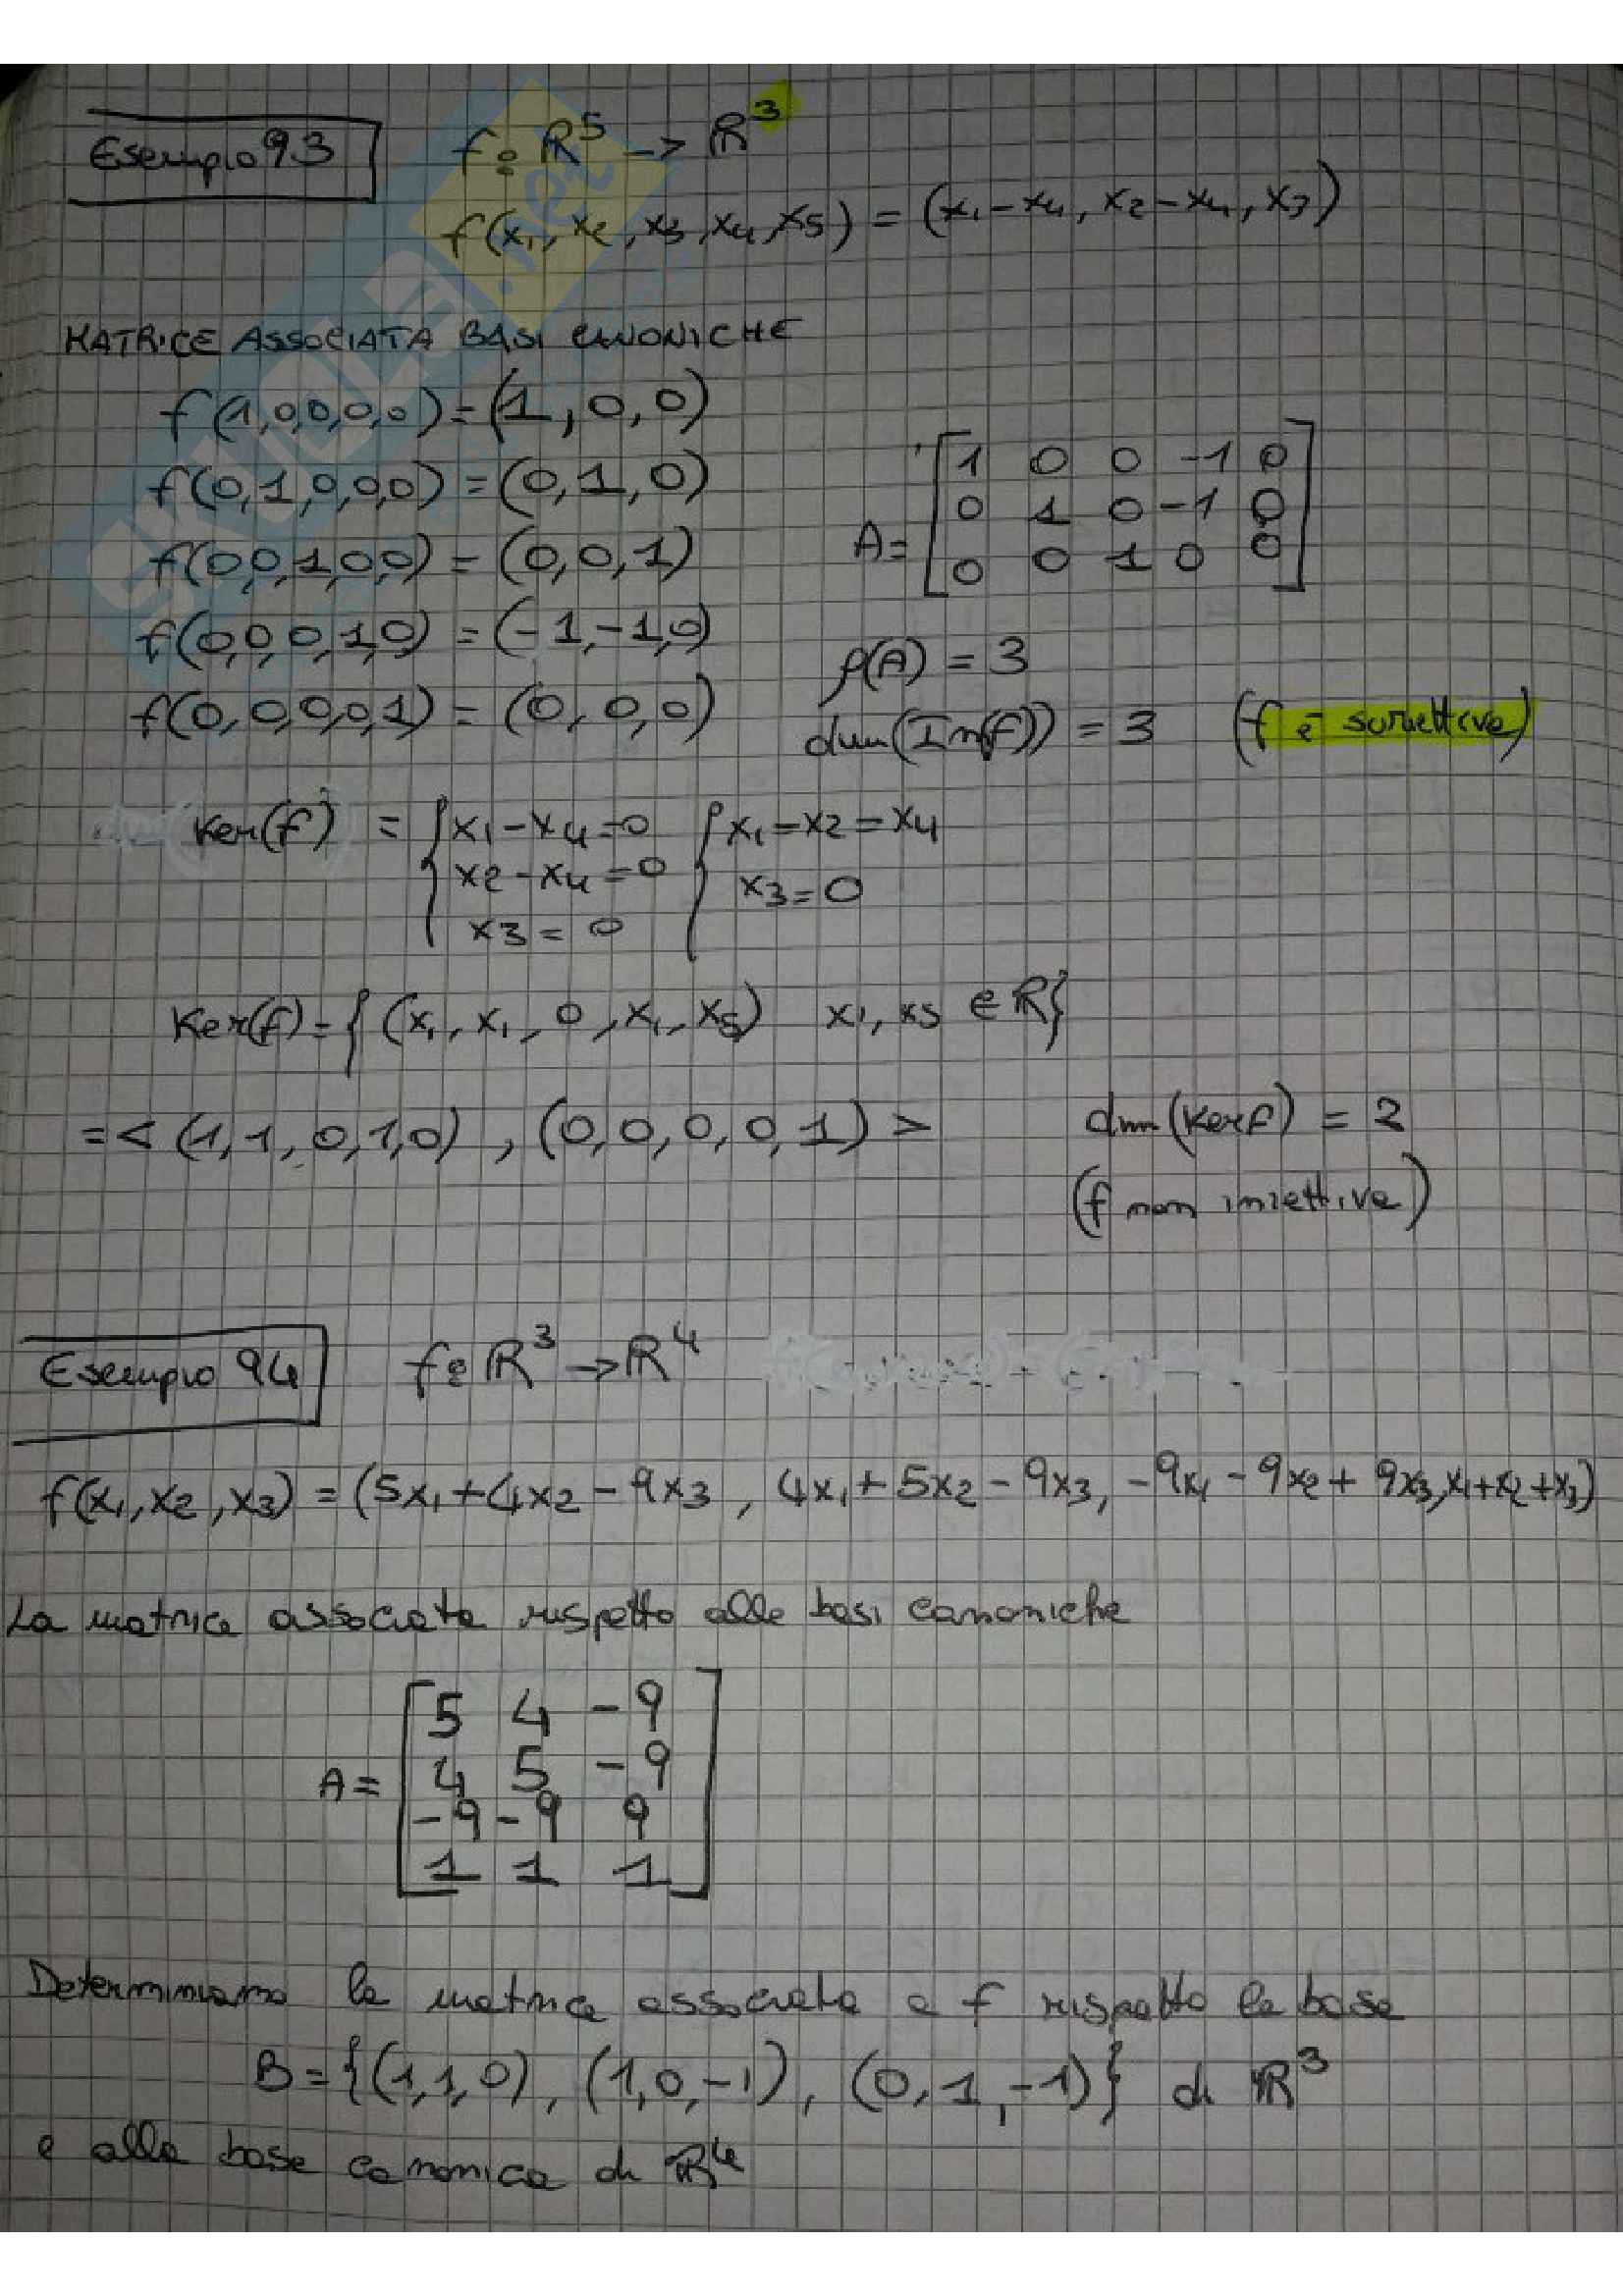 Esempio 93 f: ℝ⁵ → ℝ³
f(x₁, x₂, x₃, x₄, x₅) = (x₁-x₄, x₂-x₄, x₃)
MATRICE ASSOCIATA BASI CANONICHE
f(1,0,0,0,0) = (1,0,0)
f(0,1,0,0,0) = (0,1,0)
f(0,0,1,0,0) = (0,0,1)
f(0,0,0,1,0) = (-1,-1,0)
f(0,0,0,0,1) = (0,0,0)
A= [1 0 0 -1 0
0 1 0 -1 0
0 0 1 0 0]
ρ(A) = 3
dim(Im(f)) = 3 (f è suriettiva)
Ker(f) = { x₁-x₄=0 { x₁=x₂=x₄
x₂-x₄=0 x₃=0
x₃=0
Ker(f)={(x₁, x₁, 0, x₁, x₅) x₁, x₅ ∈ ℝ}
=<(1,1,0,1,0), (0,0,0,0,1)> dim(kerf) = 2
(f non iniettiva)
Esempio 94 f: ℝ³ → ℝ⁴
f(x₁, x₂, x₃) = (5x₁+4x₂-9x₃, 4x₁+5x₂-9x₃, -9x₁-9x₂+9x₃, x₁+x₂+x₃)
La matrice associata rispetto alle basi canoniche
A= [5 4 -9
4 5 -9
-9 -9 9
1 1 1]
Determiniamo la matrice associata a f rispetto la base
B={(1,1,0), (1,0,-1), (0,1,-1)} di ℝ³
e alla base canonica di ℝ⁴
SKUOLA.net